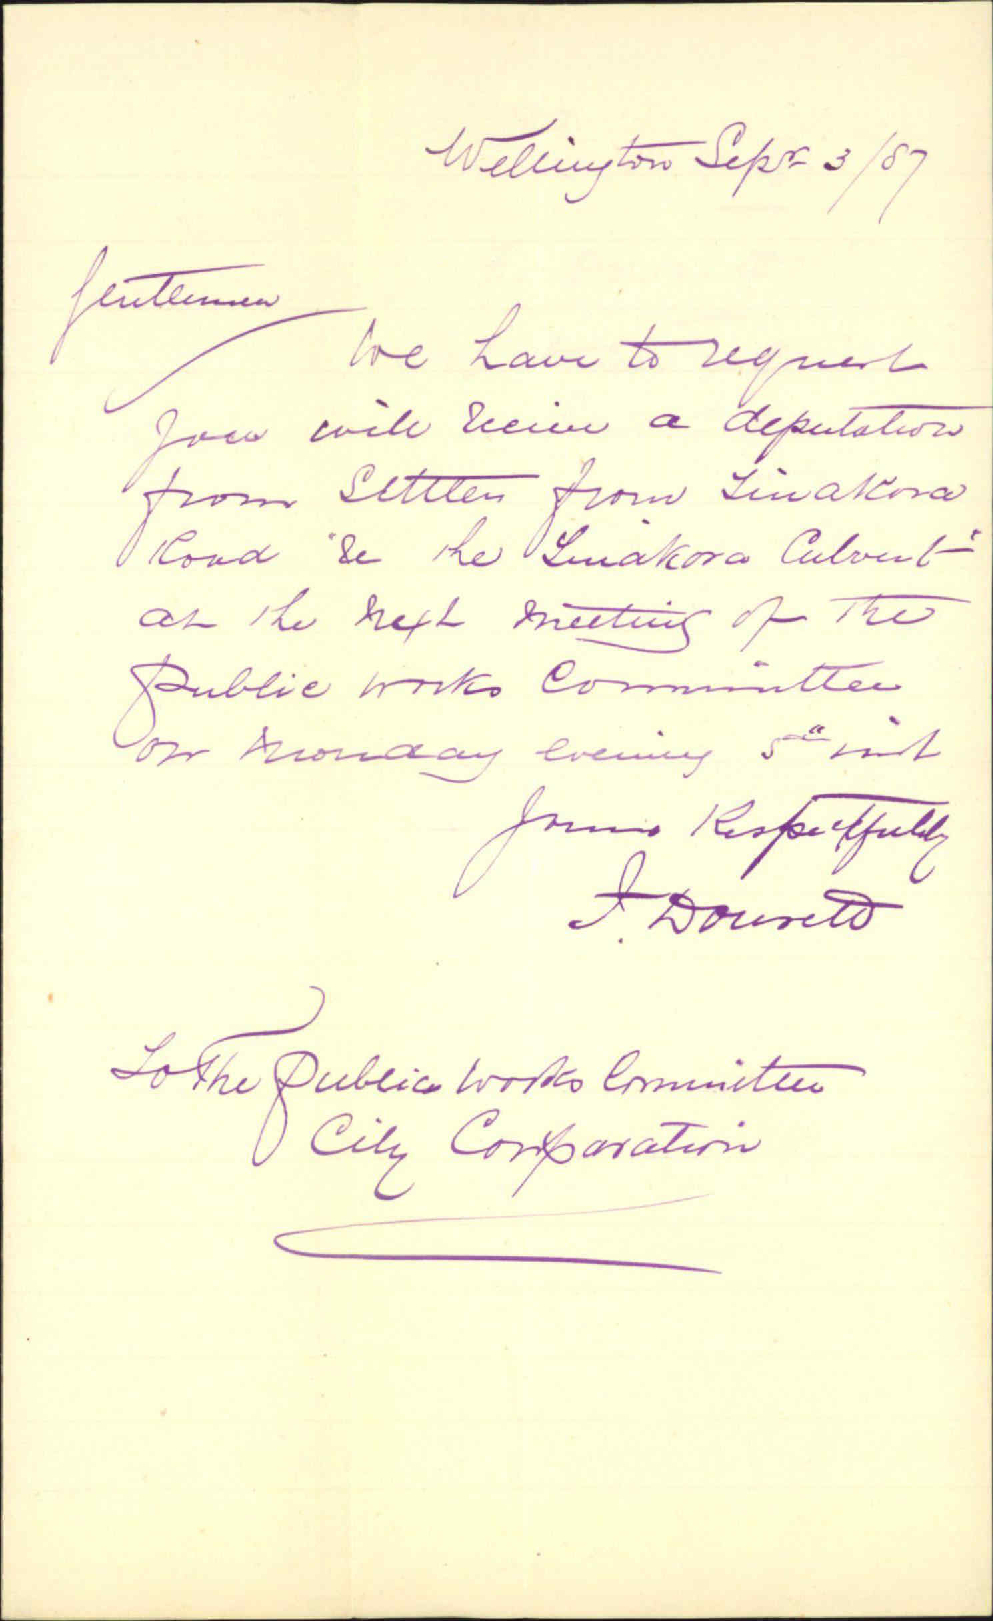 Wellington Sepr 3/87
Gentlemen
We have to request
you will receive a deputation
from Settlers from Tinakora
Road "Re the Tinakora Culvert"
at the next meeting of the
Public works Committee
on Monday evening 5th inst
Yours Respectfully
J. Dowsett
To The Public Works Committee
City Corporation